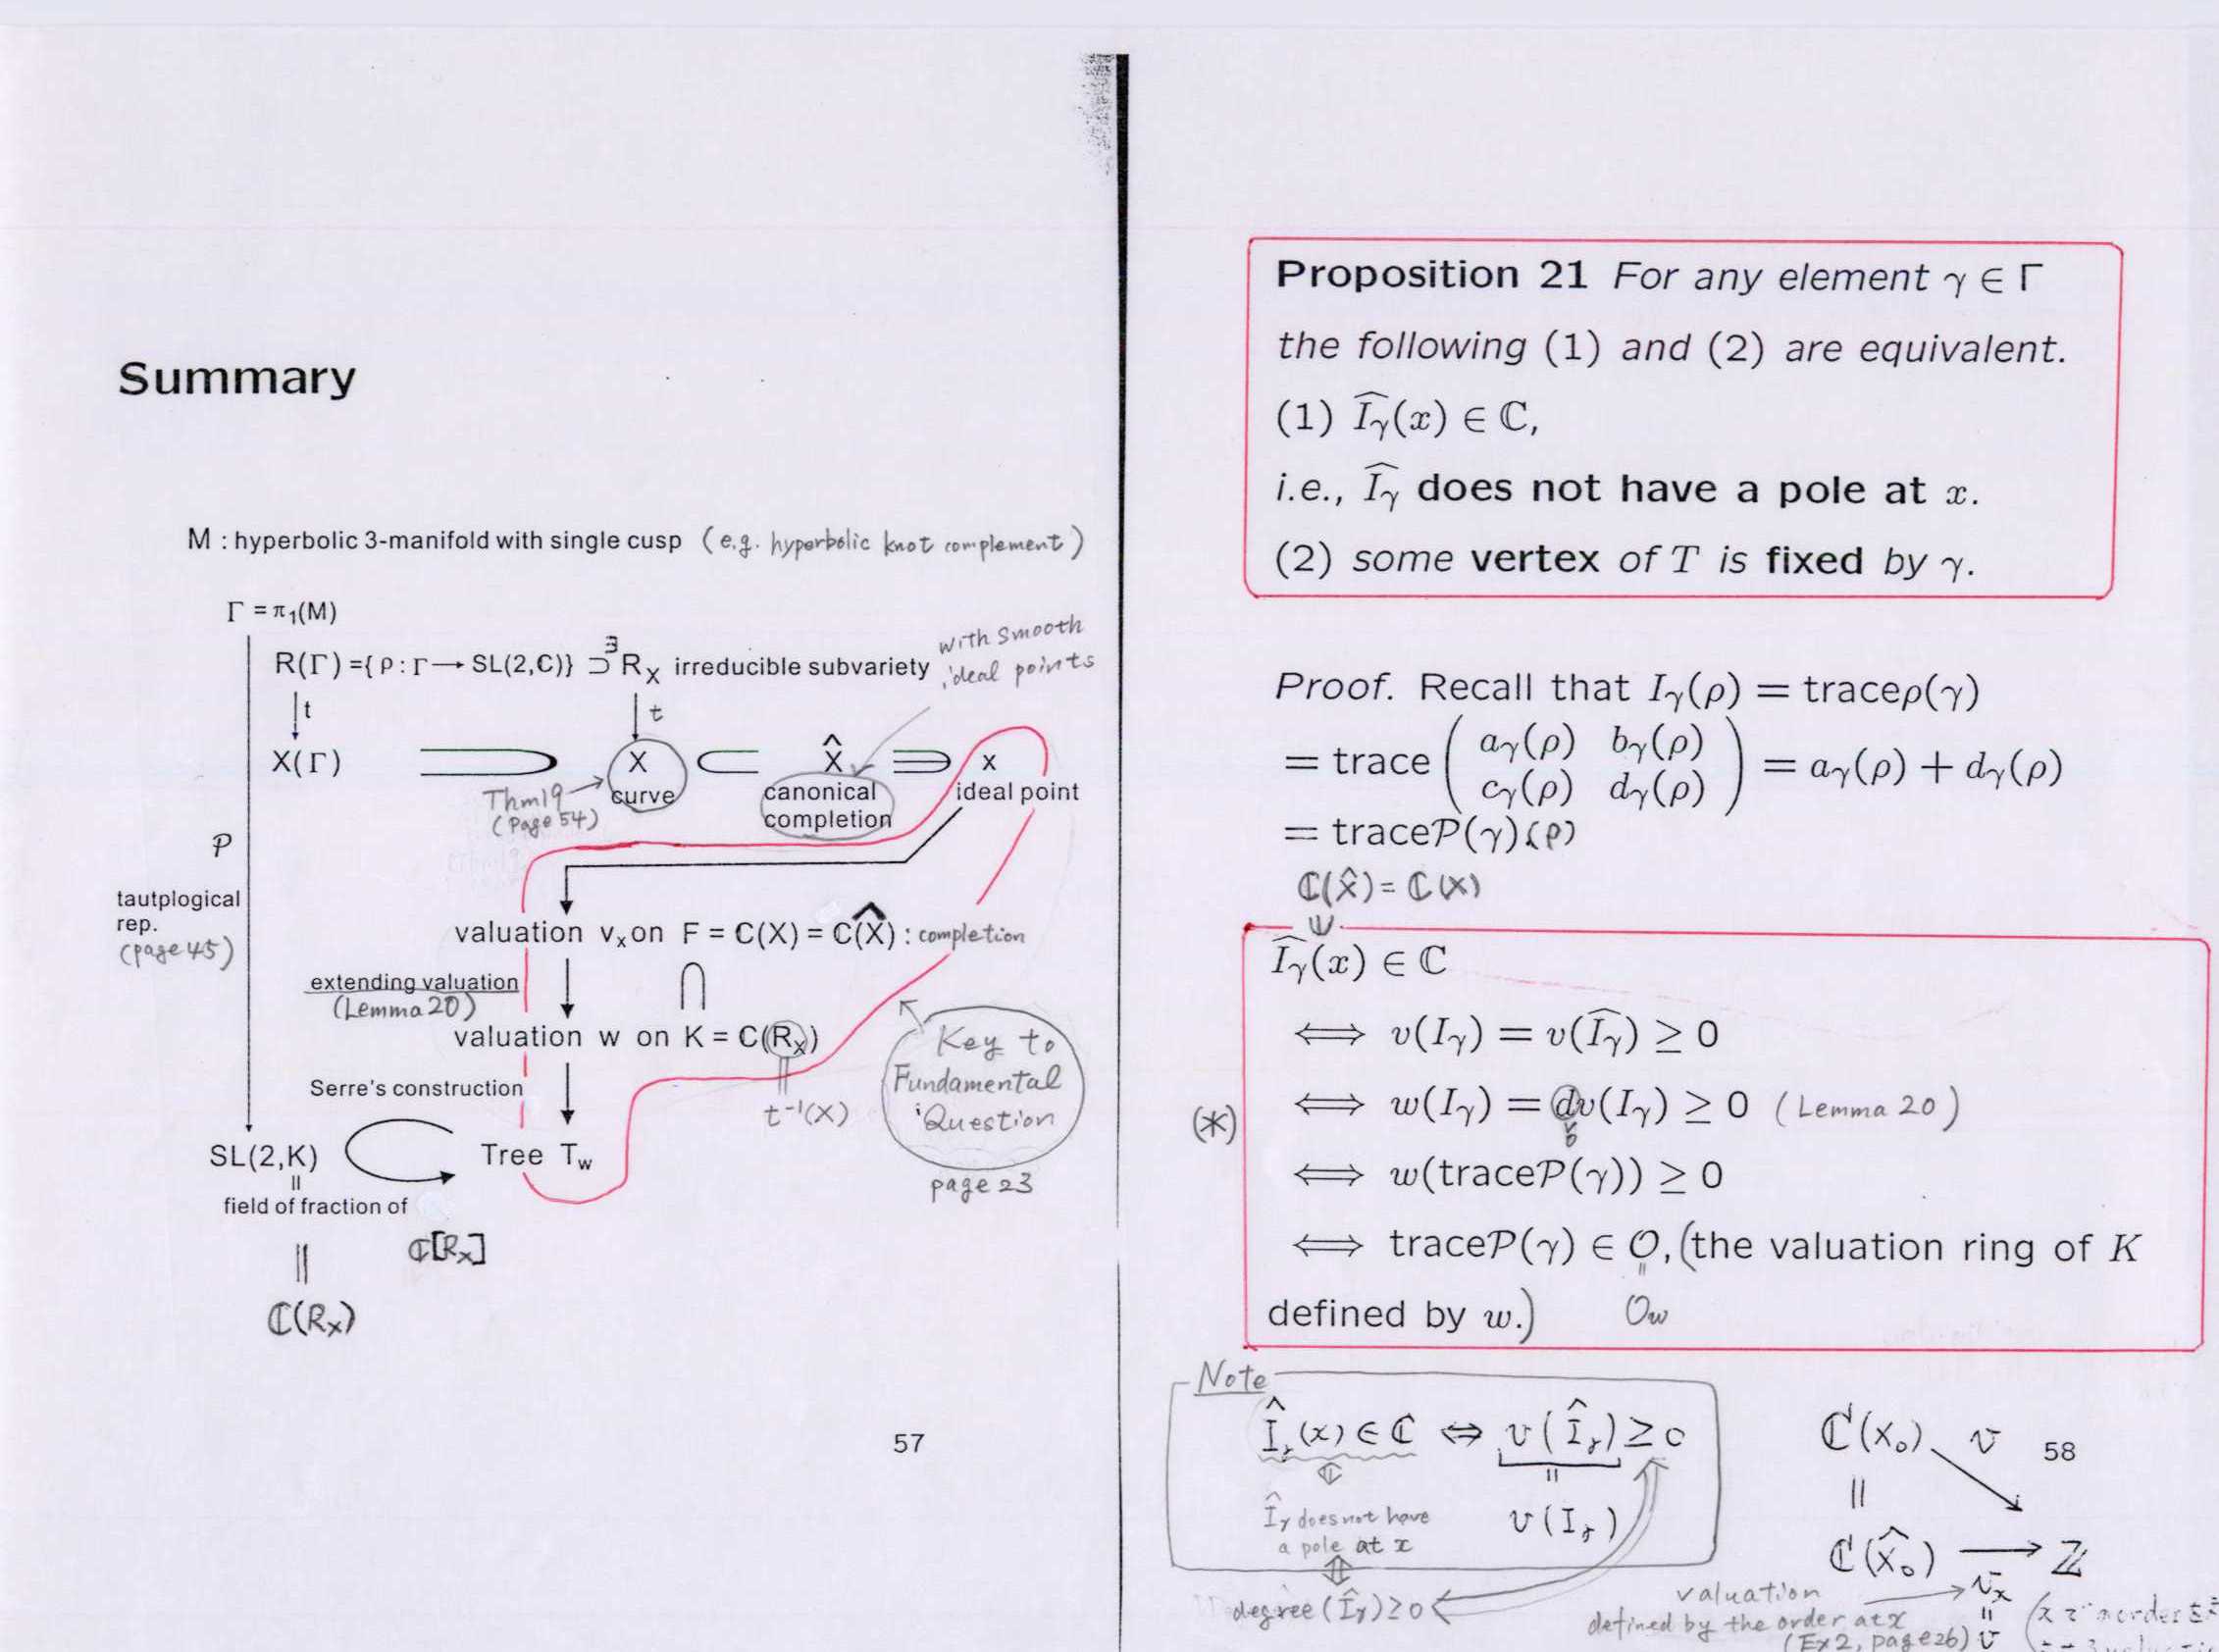 Summary
M : hyperbolic 3-manifold with single cusp (e.g. hyperbolic knot complement)
Γ = π₁(M)
R(Γ) ={ρ : Γ → SL(2,C)} ⊃ ∃ R_X irreducible subvariety
with smooth
ideal points
t
t
X(Γ) ⊃ X ⊂ X̂ ∋ x
curve
canonical
completion
ideal point
Thm19
(Page 54)
𝒫
tautplogical
rep.
(page 45)
valuation v_x on F = C(X) = C(X̂) : completion
extending valuation
(Lemma 20)
∩
valuation w on K = C(R_X)
||
t⁻¹(X)
Serre's construction
SL(2,K)
Tree T_w
||
field of fraction of
ℂ[R_X]
||
ℂ(R_X)
Key to
Fundamental
Question
page 23
57
Proposition 21 For any element γ ∈ Γ
the following (1) and (2) are equivalent.
(1) Î_γ(x) ∈ ℂ,
i.e., Î_γ does not have a pole at x.
(2) some vertex of T is fixed by γ.
Proof. Recall that I_γ(ρ) = traceρ(γ)
= trace ( a_γ(ρ) b_γ(ρ)
c_γ(ρ) d_γ(ρ) ) = a_γ(ρ) + d_γ(ρ)
= trace𝒫(γ)(ρ)
ℂ(X̂) = ℂ(X)
Î_γ(x) ∈ ℂ
⟺ v(I_γ) = v(Î_γ) ≥ 0
⟺ w(I_γ) = dv(I_γ) ≥ 0 (Lemma 20)
(*)
⟺ w(trace𝒫(γ)) ≥ 0
⟺ trace𝒫(γ) ∈ 𝒪, (the valuation ring of K
||
defined by w.) 𝒪w
Note
Î_γ(x) ∈ ℂ ⇔ v(Î_γ) ≥ 0
||
v(I_γ)
Î_γ does not have
a pole at x
⇕
degree (Î_γ) ≥ 0
ℂ(X₀) v
58
||
ℂ(X̂₀) → ℤ
v_x
valuation
defined by the order at x
(Ex2, page 26)
||
v